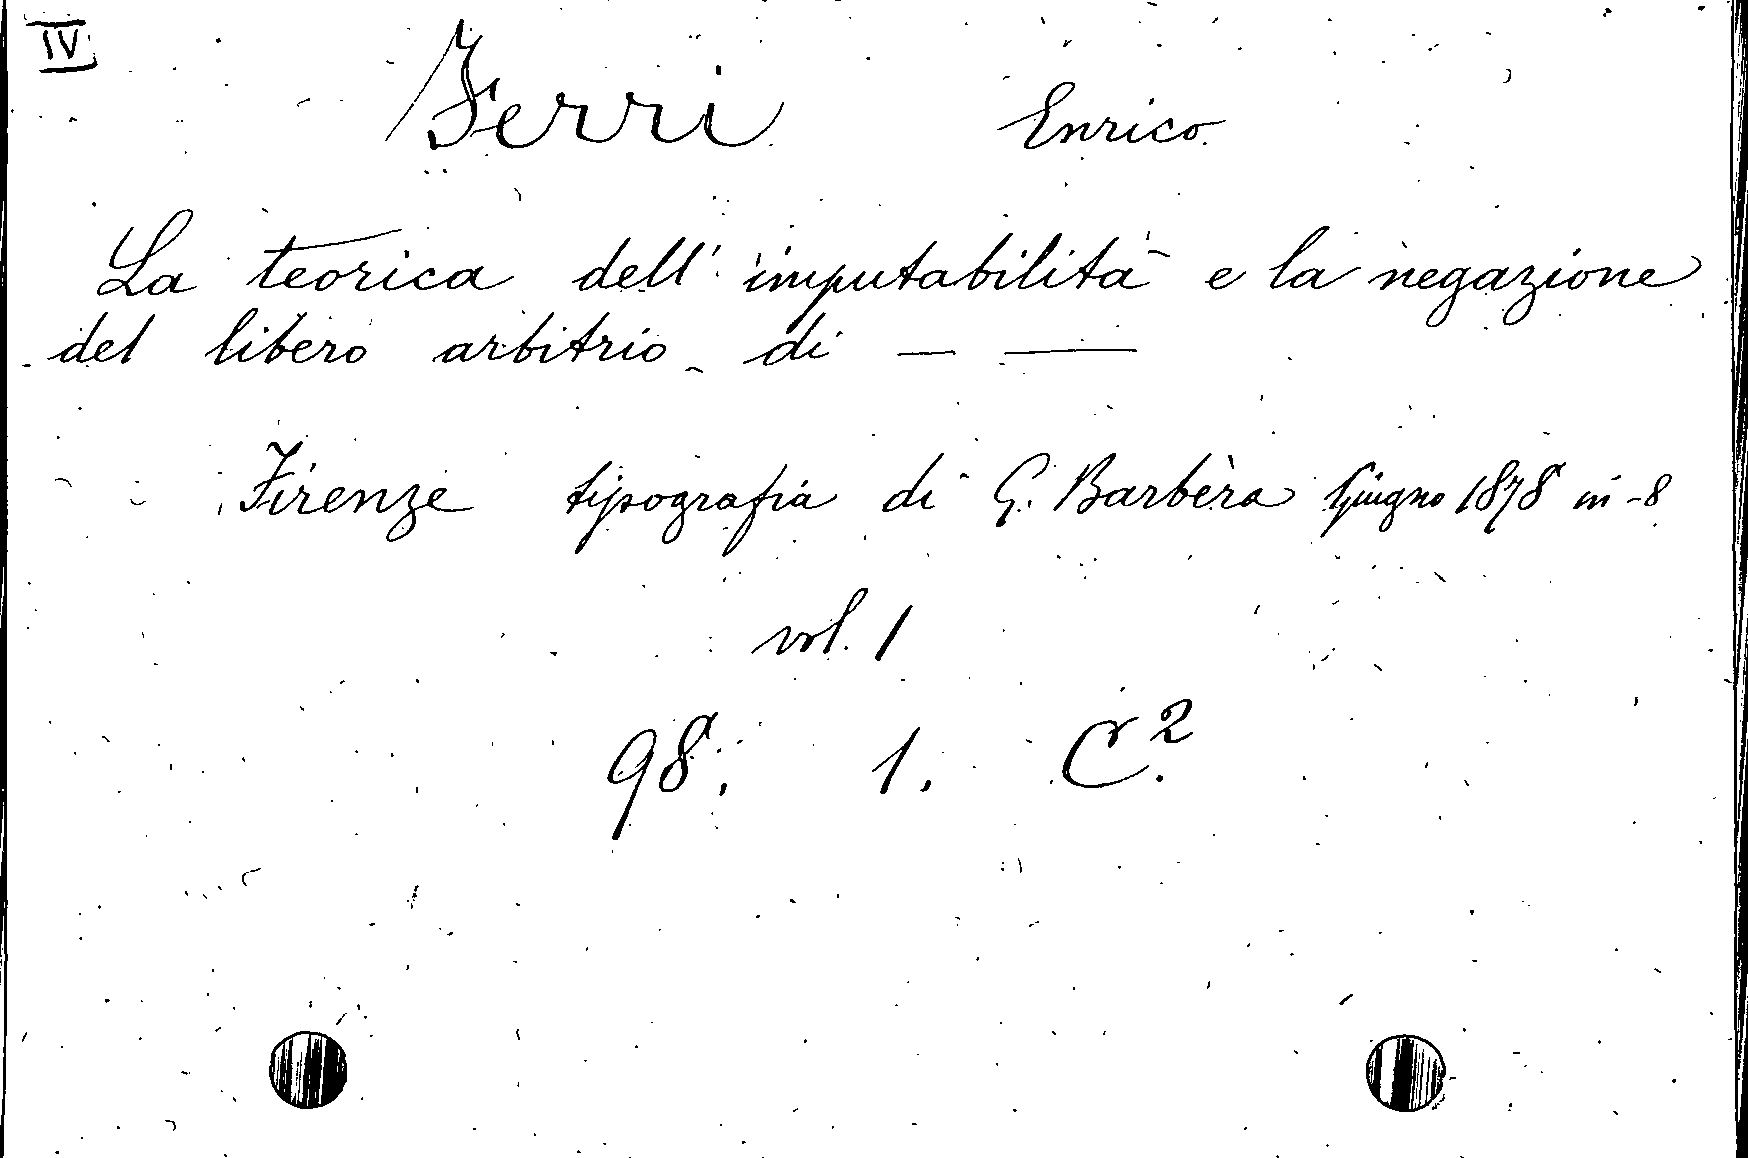 IV
Ferri Enrico
La teorica dell'imputabilità e la negazione
del libero arbitrio di — —
Firenze tipografia di G. Barbèra Giugno 1878 in-8
vol. 1
98. 1. C.2